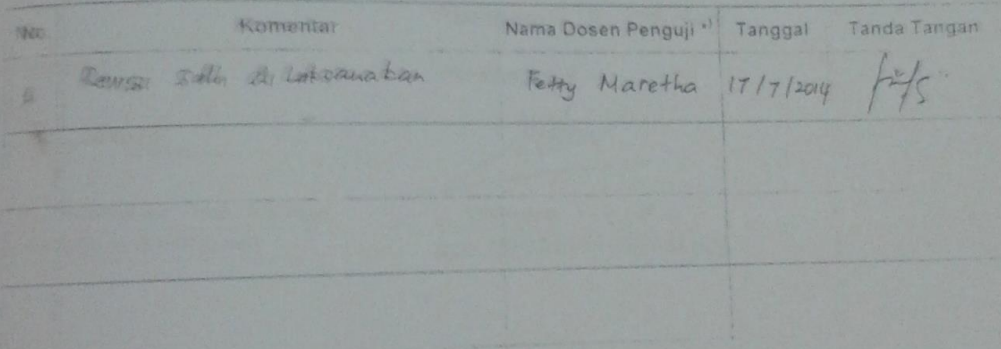 No Komentar Nama Dosen Penguji *) Tanggal Tanda Tangan
Revisi Telah di Laksanakan Fetty Maretha 17/7/2014